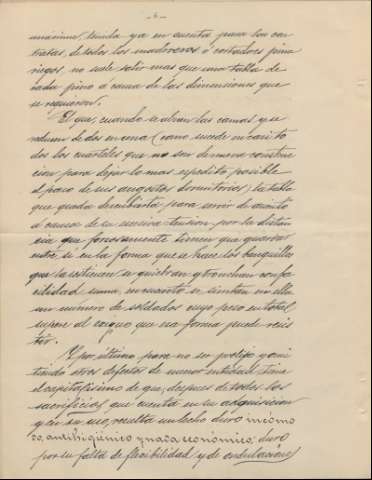 - 6 -
máxima, tenida ya en cuenta para los con
tratas, de todos los madereros ó cortadores pina
riegos, no suele salir mas que una tabla de
cada pino á causa de las dimensiones que
se requieren.
El que, cuando se alzan las camas, y se
reducen de dos en una (como sucede en casi to
dos los cuarteles que no son de nueva construc
cion para dejar lo mas expedito posible
el paso de sus angostos dormitorios) la tabla
que queda descubierta para servir de asiento
á causa de su excesiva tension por la distan
cia que forzosamente tienen que guardar
entre si en la forma que se hace los banquillos
que la sostienen se quiebran y tronchan con fa
cilidad suma, en cuanto se sientan en ella
un número de soldados cuyo peso en total
supere al cargo que esa forma puede resis
tir.
Y por último para no ser prolijo y omi
tiendo otros defectos de menor entidad tiene
el capitalísimo de que, despues de todos los
sacrificios que cuesta en su adquisicion
y en su uso, resulta un lecho duro incómo
do, antihigiénico y nada económico; duro
por su falta de flexibilidad y de ondulacion,